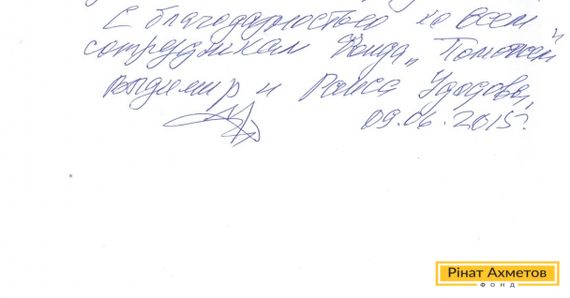 С благодарностью ко всем
сотрудникам Фонда „Поможем"
Владимир и Раиса Удодовы,
09.06.2015г.
Рінат Ахметов
ФОНД